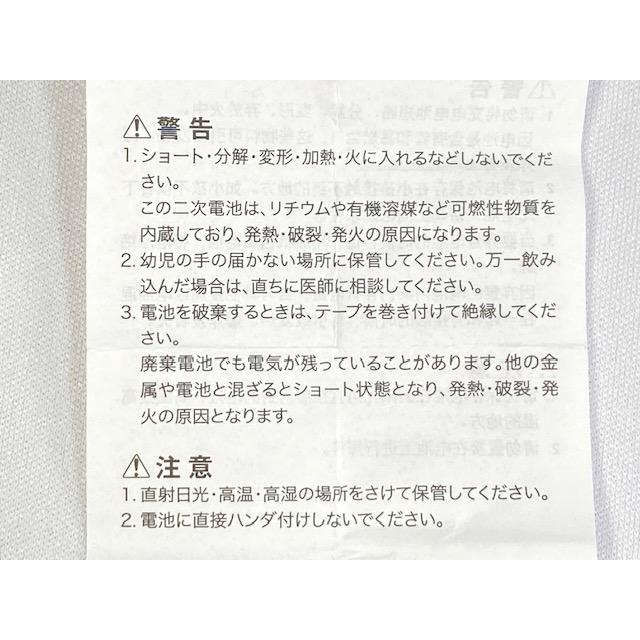 ⚠警告
1. ショート・分解・変形・加熱・火に入れるなどしないでくだ
さい。
この二次電池は、リチウムや有機溶媒など可燃性物質を
内蔵しており、発熱・破裂・発火の原因になります。
2. 幼児の手の届かない場所に保管してください。万一飲み
込んだ場合は、直ちに医師に相談してください。
3. 電池を破棄するときは、テープを巻き付けて絶縁してくだ
さい。
廃棄電池でも電気が残っていることがあります。他の金
属や電池と混ざるとショート状態となり、発熱・破裂・発
火の原因となります。
⚠注意
1. 直射日光・高温・高湿の場所をさけて保管してください。
2. 電池に直接ハンダ付けしないでください。